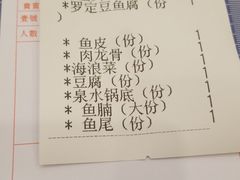 *罗定豆鱼腐（份
)
*鱼皮（份）1
*肉龙骨（份）1
*海浪菜（份）1
*豆腐（份）1
*泉水锅底（份）1
*鱼腩（大份）1
*鱼尾（份）1
壹號
人數